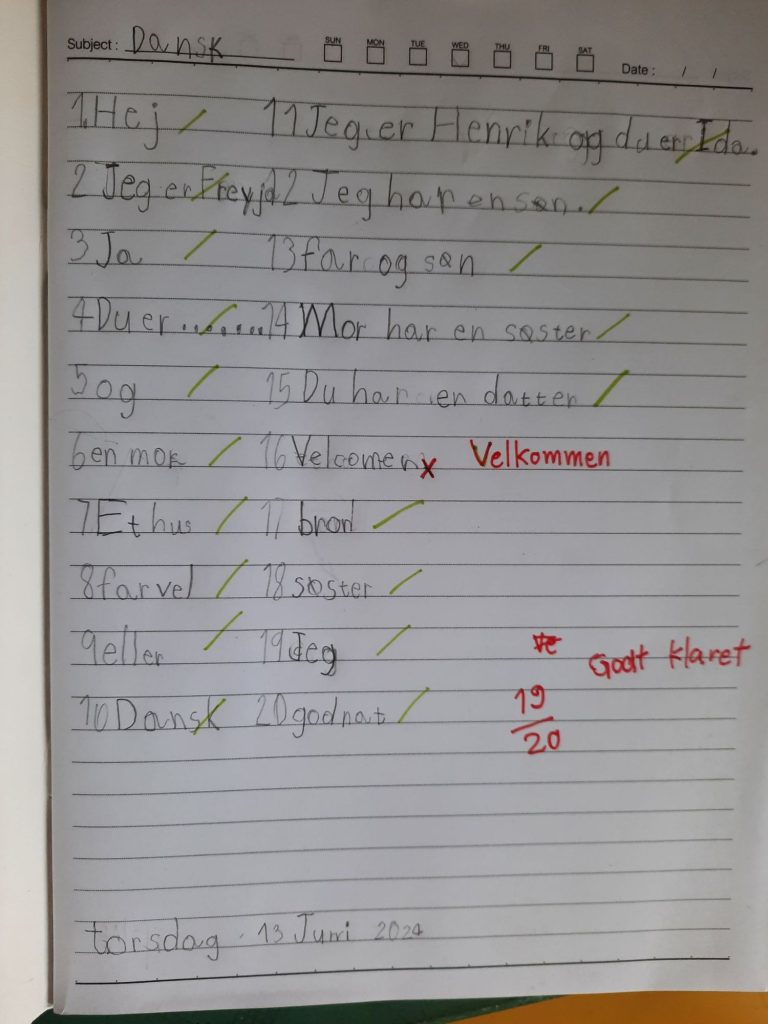 Subject: Dansk SUN MON TUE WED THU FRI SAT Date: / /
1. Hej 11 Jeg er Henrik og du er Ida.
2 Jeg er Freyja 12 Jeg har en søn.
3 Ja 13 far og søn
4 Du er ......... 14 Mor har en søster
5 og 15 Du har en datter
6 en mor 16 Velcomen x Velkommen
7 Et hus 17 brød
8 farvel 18 søster
9 eller 19 Jeg
Godt klaret
10 Dansk 20 godnat
19
20
torsdag 13 Juni 2024